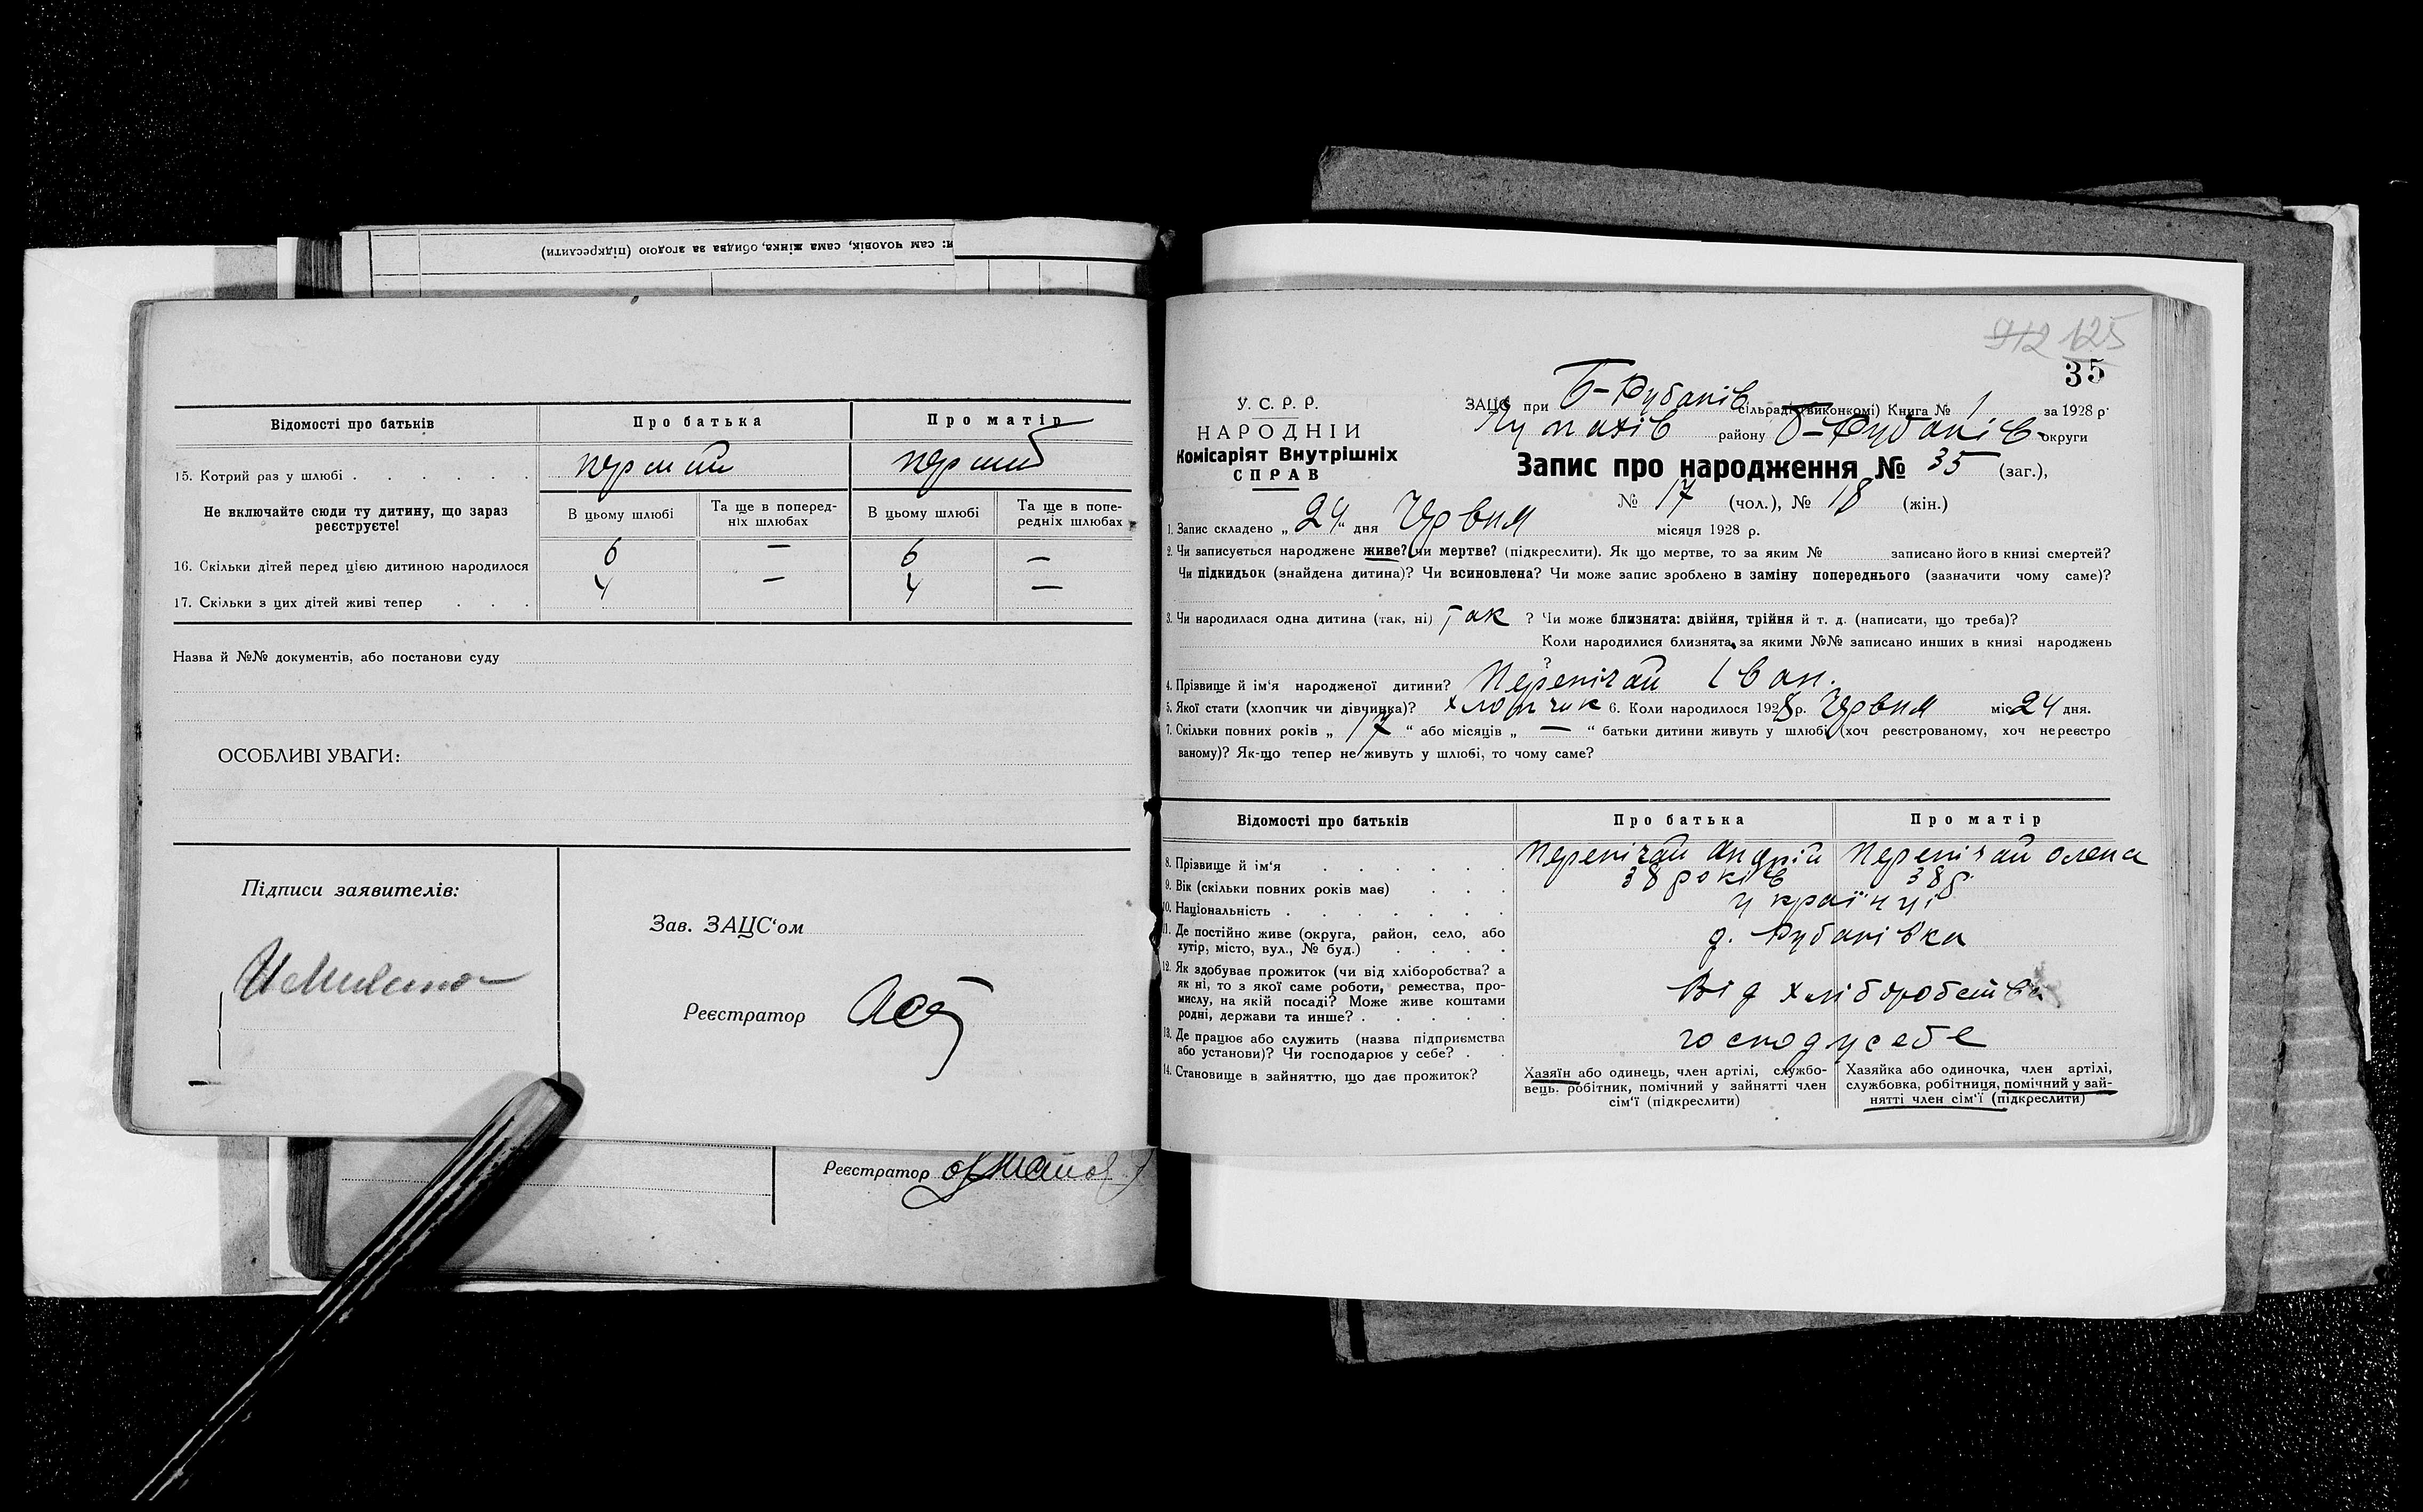 и: сам чоловік, сама жінка, обидва за згодою (підкреслити)
Відомості про батьків
Про батька
Про матір
15. Котрий раз у шлюбі
перший
перший
Не включайте сюди ту дитину, що зараз реєструєте!
В цьому шлюбі
Та ще в поперед-
ніх шлюбах
В цьому шлюбі
Та ще в попе-
редніх шлюбах
16. Скільки дітей перед цією дитиною народилося
6 — 6 —
17. Скільки з цих дітей живі тепер
4 — 4 —
Назва й №№ документів, або постанови суду
ОСОБЛИВІ УВАГИ:
Підписи заявителів:
Зав. ЗАЦС'ом
Реєстратор
Реєстратор
912 125
35
У. С. Р. Р.
НАРОДНІЙ
Комісаріят Внутрішніх
СПРАВ
ЗАЦС при Б-Рубанів сільраді (виконкомі) Книга № 1 за 1928 р.
району Б-Рубанів округи
Запис про народження № 35 (заг.),
№ 17 (чол.), № 18 (жін.)
1. Запис складено „ 24 “ дня Червня місяця 1928 р.
2. Чи записується народжене живе? чи мертве? (підкреслити). Як що мертве, то за яким № записано його в книзі смертей?
Чи підкидьок (знайдена дитина)? Чи всиновлена? Чи може запис зроблено в заміну попереднього (зазначити чому саме)?
3. Чи народилася одна дитина (так, ні) так ? Чи може близнята: двійня, трійня й т. д. (написати, що треба)?
Коли народилися близнята, за якими №№ записано инших в книзі народжень
?
4. Прізвище й ім'я народженої дитини? Перепічай Іван.
5. Якої стати (хлопчик чи дівчинка)? хлопчик 6. Коли народилося 1928 р. Червня міс 24 дня.
7. Скільки повних років „ 17 “ або місяців „ — “ батьки дитини живуть у шлюбі (хоч реєстрованому, хоч нереєстро
ваному)? Як-що тепер не живуть у шлюбі, то чому саме?
Відомості про батьків
Про батька
Про матір
8. Прізвище й ім'я
Перепічай Андрій
Перепічай Олена
9. Вік (скільки повних років має)
38 років
38 р.
10. Національність
українці
11. Де постійно живе (округа, район, село, або
хутір, місто, вул., № буд.)
д. Рубанівка
12. Як здобуває прожиток (чи від хліборобства? а
як ні, то з якої саме роботи, ремества, про-
мислу, на якій посаді? Може живе коштами
родні, держави та инше?
Від хліборобства
13. Де працює або служить (назва підприємства
або установи)? Чи господарює у себе?
господ у себе
14. Становище в зайняттю, що дає прожиток?
Хазяїн або одинець, член артілі, службо-
вець, робітник, помічний у зайнятті член
сім'ї (підкреслити)
Хазяйка або одиночка, член артілі,
службовка, робітниця, помічний у зай-
нятті член сім'ї (підкреслити)